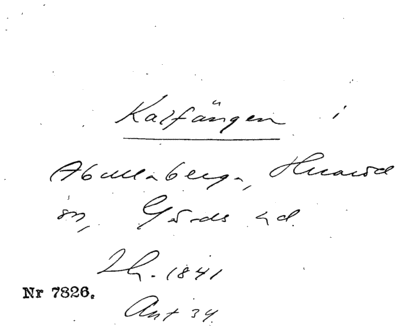 Kalfängen i
Abullaberga,
sn, Gärds hd.
Lh. 1841
Nr 7826.
Ant 34.